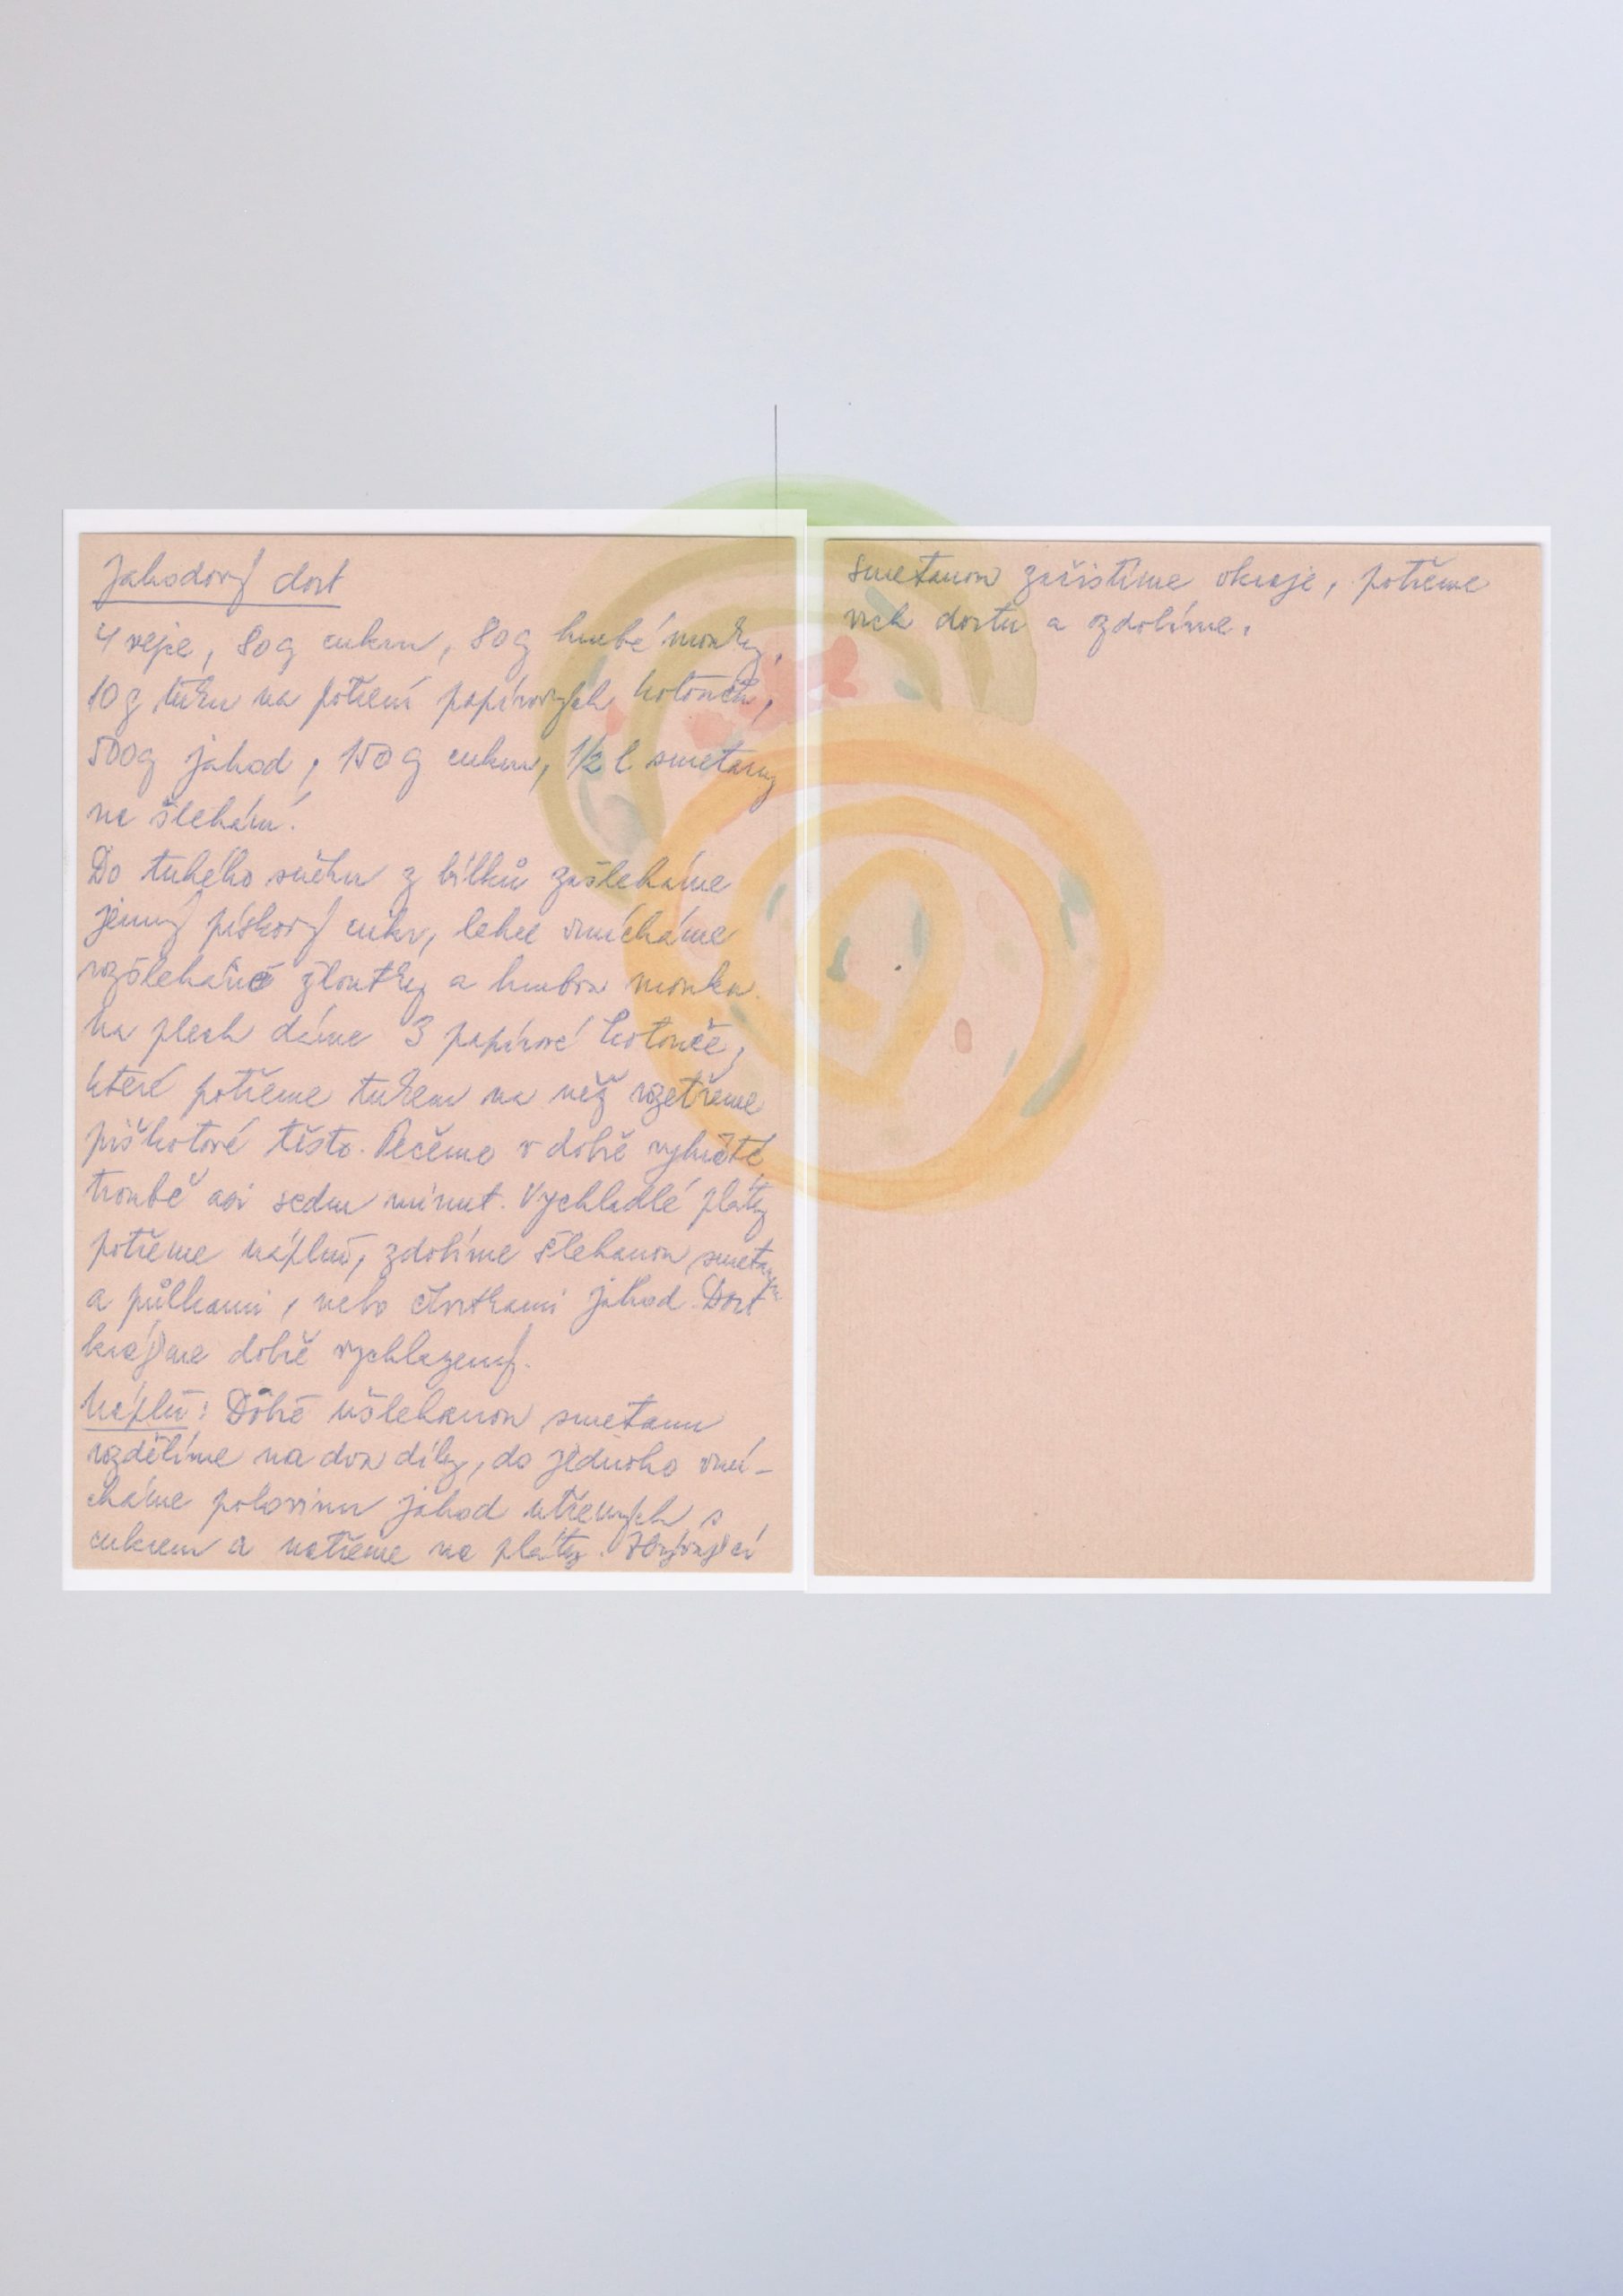 Jahodový dort
4 vejce, 80g cukru, 80g hrubé mouky,
10g tuku na potření papírových kotoučů,
500g jahod, 150g cukru, 1/2 l smetany
na šlehání.
Do tuhého sněhu z bílků zašleháme
jemný pískový cukr, lehce vmícháme
rozšlehané žloutky a hrubou mouku.
Na plech dáme 3 papírové kotouče,
které potřeme tukem na něž rozetřeme
piškotové těsto. Pečeme v dobře vyhřáté
troubě asi sedm minut. Vychladlé pláty
potřeme náplní, zdobíme šlehanou smetanou
a půlkami, nebo čtvrtkami jahod. Dort
krájíme dobře vychlazený.
Náplň: Dobře ušlehanou smetanu
rozdělíme na dva díly, do jednoho vmí-
cháme polovinu jahod utřených s
cukrem a natřeme na pláty. Zbývající
smetanou začistíme okraje, potřeme
vrch dortu a ozdobíme.